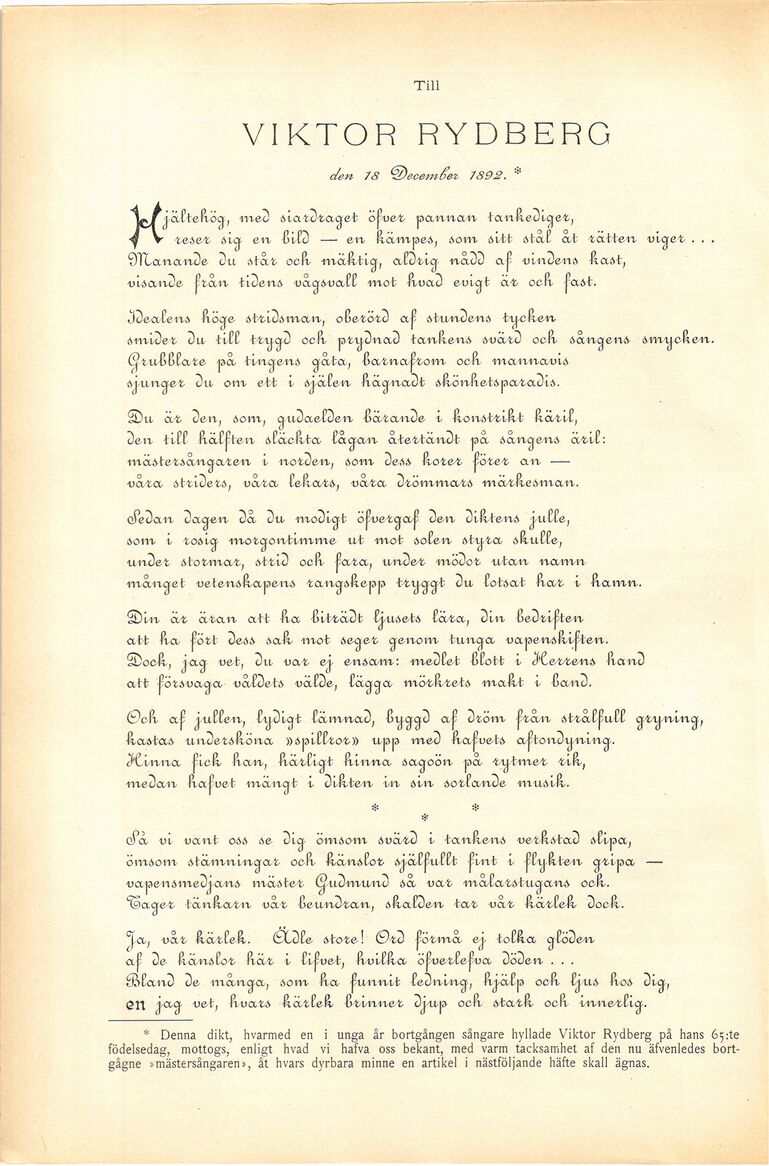 Till
VIKTOR RYDBERG
den 18 December 1892. *
Hjältehög, med siardraget öfver pannan tankediger,
reser sig en bild — en kämpes, som sitt stål åt rätten viger . . .
Manande du står och mäktig, aldrig nådd af vindens kast,
visande från tidens vågsvall mot hvad evigt är och fast.
Idealens höge stridsman, oberörd af stundens tycken
smider du till trygd och prydnad tankens svärd och sångens smycken.
Grubblare på tingens gåta, barnafrom och mannavis
sjunger du om ett i själen hägnadt skönhetsparadis.
Du är den, som, gudaelden bärande i konstrikt käril,
den till hälften släckta lågan återtändt på sångens äril:
mästersångaren i norden, som dess korer förer an —
våra striders, våra lekars, våra drömmars märkesman.
Sedan dagen då du modigt öfvergaf den diktens julle,
som i rosig morgontimme ut mot solen styra skulle,
under stormar, strid och fara, under mödor utan namn
månget vetenskapens rangskepp tryggt du lotsat har i hamn.
Din är äran att ha biträdt ljusets lära, din bedriften
att ha fört dess sak mot seger genom tunga vapenskiften.
Dock, jag vet, du var ej ensam: medlet blott i Herrens hand
att försvaga våldets välde, lägga mörkrets makt i band.
Och af jullen, lydigt lämnad, byggd af dröm från strålfull gryning,
kastas undersköna »spillror» upp med hafvets aftondyning.
Hinna fick han, härligt hinna sagoön på rytmer rik,
medan hafvet mängt i dikten in sin sorlande musik.
* *
*
Så vi vant oss se dig ömsom svärd i tankens verkstad slipa,
ömsom stämningar och känslor själfullt fint i flykten gripa —
vapensmedjans mäster Gudmund så var målarstugans ock.
Tager tänkarn vår beundran, skalden tar vår kärlek dock.
Ja, vår kärlek. Ädle store! Ord förmå ej tolka glöden
af de känslor här i lifvet, hvilka öfverlefva döden . . .
Bland de många, som ha funnit ledning, hjälp och ljus hos dig,
en jag vet, hvars kärlek brinner djup och stark och innerlig.
* Denna dikt, hvarmed en i unga år bortgången sångare hyllade Viktor Rydberg på hans 65:te
födelsedag, mottogs, enligt hvad vi hafva oss bekant, med varm tacksamhet af den nu äfvenledes bort-
gågne »mästersångaren», åt hvars dyrbara minne en artikel i nästföljande häfte skall ägnas.